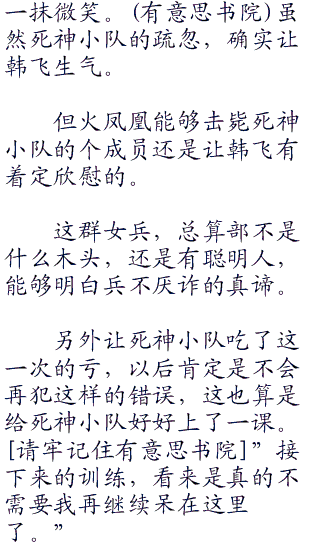 一抹微笑。(有意思书院)虽
然死神小队的疏忽，确实让
韩飞生气。
但火凤凰能够击毙死神
小队的个成员还是让韩飞有
着定欣慰的。
这群女兵，总算部不是
什么木头，还是有聪明人，
能够明白兵不厌诈的真谛。
另外让死神小队吃了这
一次的亏，以后肯定是不会
再犯这样的错误，这也算是
给死神小队好好上了一课。
[请牢记住有意思书院]”接
下来的训练，看来是真的不
需要我再继续呆在这里
了。”